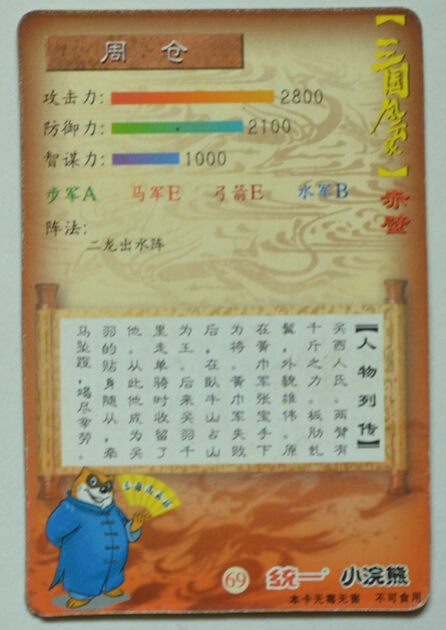 周仓
【三国风云】赤壁
攻击力: 2800
防御力: 2100
智谋力: 1000
步军A 马军E 弓箭E 水军B
阵法:
二龙出水阵
【人物列传】
关西人氏。两臂有
千斤之力。板肋虬
髯,外貌雄伟。原
在黄巾军张宝手下
为将。黄巾军失败
后,在卧牛山占山
为王。后来关羽千
里走单骑时收留了
他。从此他成为关
羽的贴身随从,牵
马坠蹬,竭尽劳。
69 统一 小浣熊
本卡无毒无害 不可食用